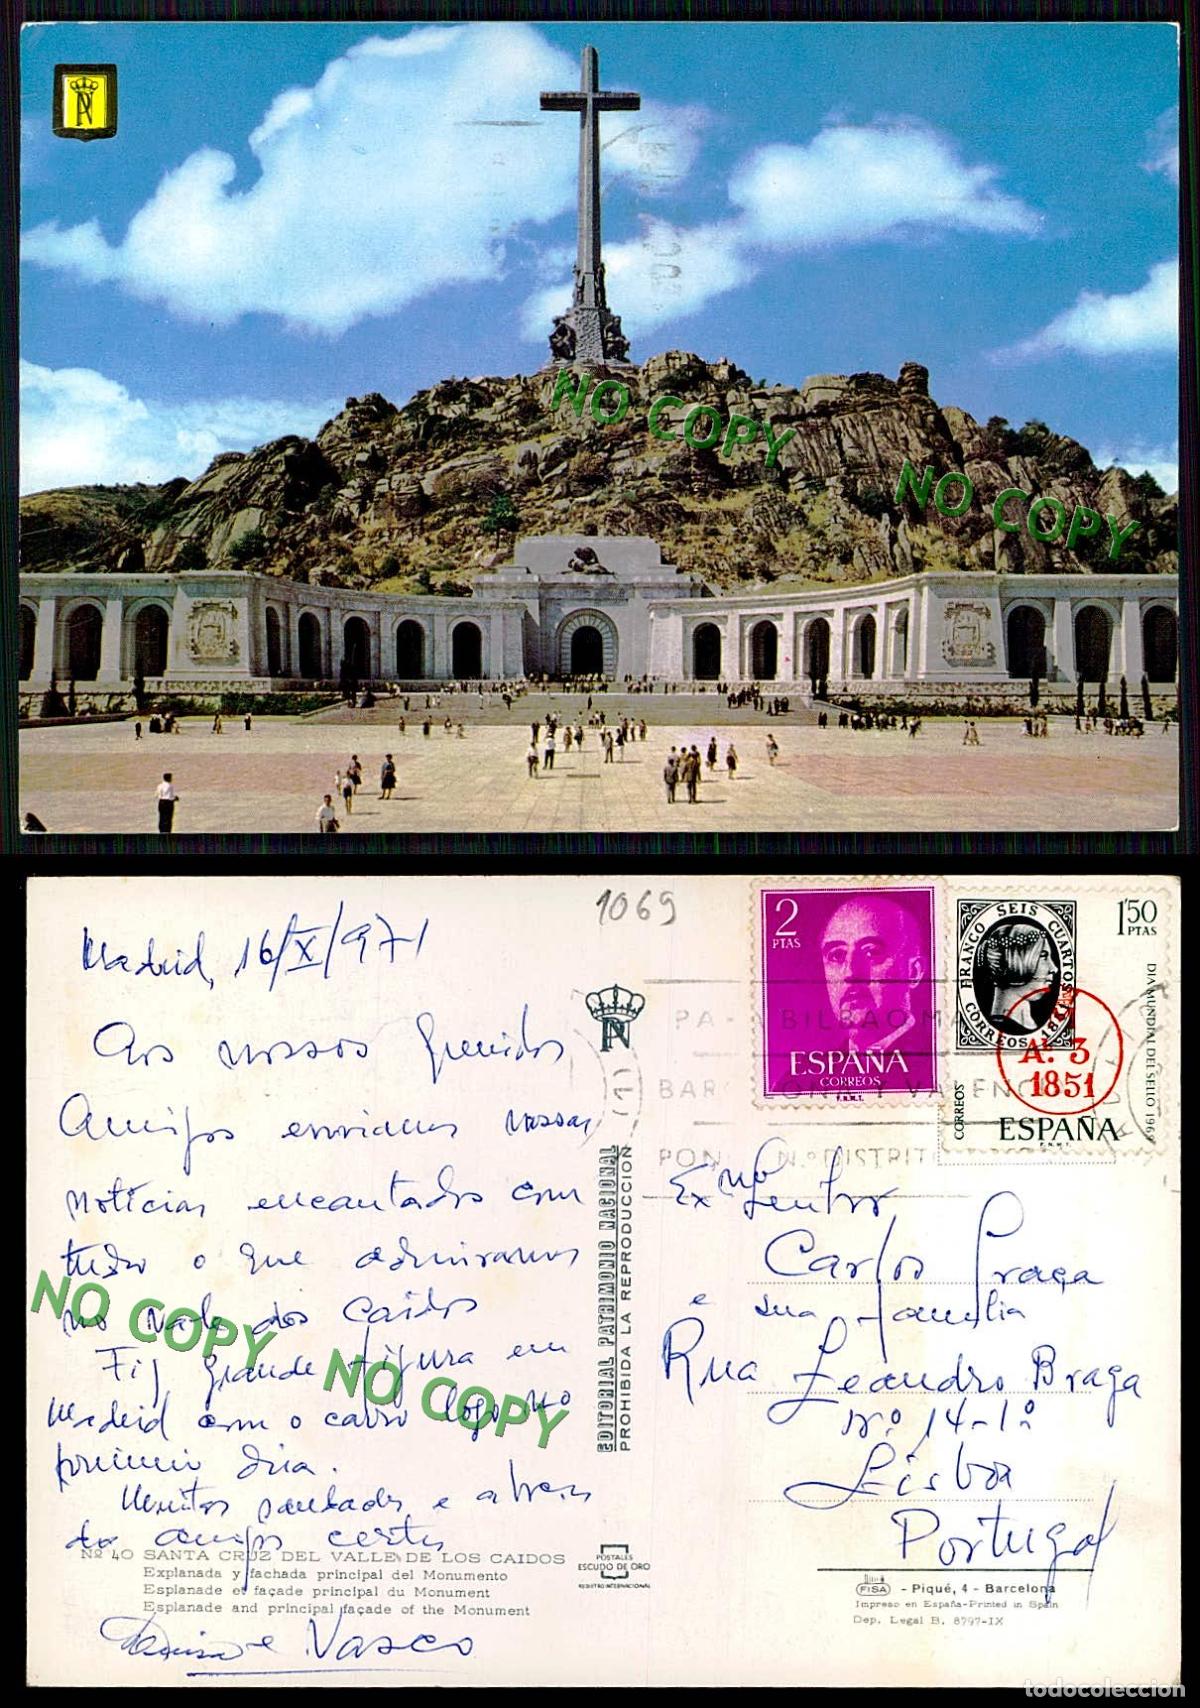 NO COPY
NO COPY
1069
Madrid, 16/X/971
Aos nossos Queridos
Amigos enviamos nossas
notícias encantados com
tudo o que admiramos
no vale dos Caidos
Fiz grande figura em
Madrid com o carro logo no
primeiro dia.
Muitas saudades e abraços
dos amigos certos
NO COPY
NO COPY
Nº 40 SANTA CRUZ DEL VALLE DE LOS CAIDOS
Explanada y fachada principal del Monumento
Esplanade et façade principal du Monument
Esplanade and principal façade of the Monument
e Vasco
EDITORIAL PATRIMONIO NACIONAL
PROHIBIDA LA REPRODUCCION
POSTALES
ESCUDO DE ORO
REGISTRO INTERNACIONAL
2
PTAS
ESPAÑA
CORREOS
F.N.M.T.
FRANCO SEIS CUARTOS
CORREOS 1851
1'50
PTAS
DIA MUNDIAL DEL SELLO 1969
A. 3
1851
CORREOS
ESPAÑA
F.N.M.T.
(1)
BILBAO
N.º DISTRIT
Exmo Senhor
Carlos Praça
e sua família
Rua Leandro Braga
nº 14-1º
Lisboa
Portugal
FISA - Piqué, 4 - Barcelona
Impreso en España-Printed in Spain
Dep. Legal B. 8797-IX
todocoleccion